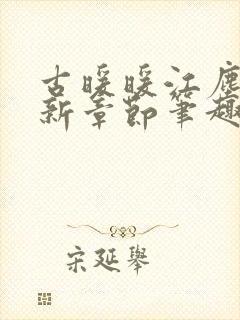 古暖暖江塵
新章節筆趣
宋延舉